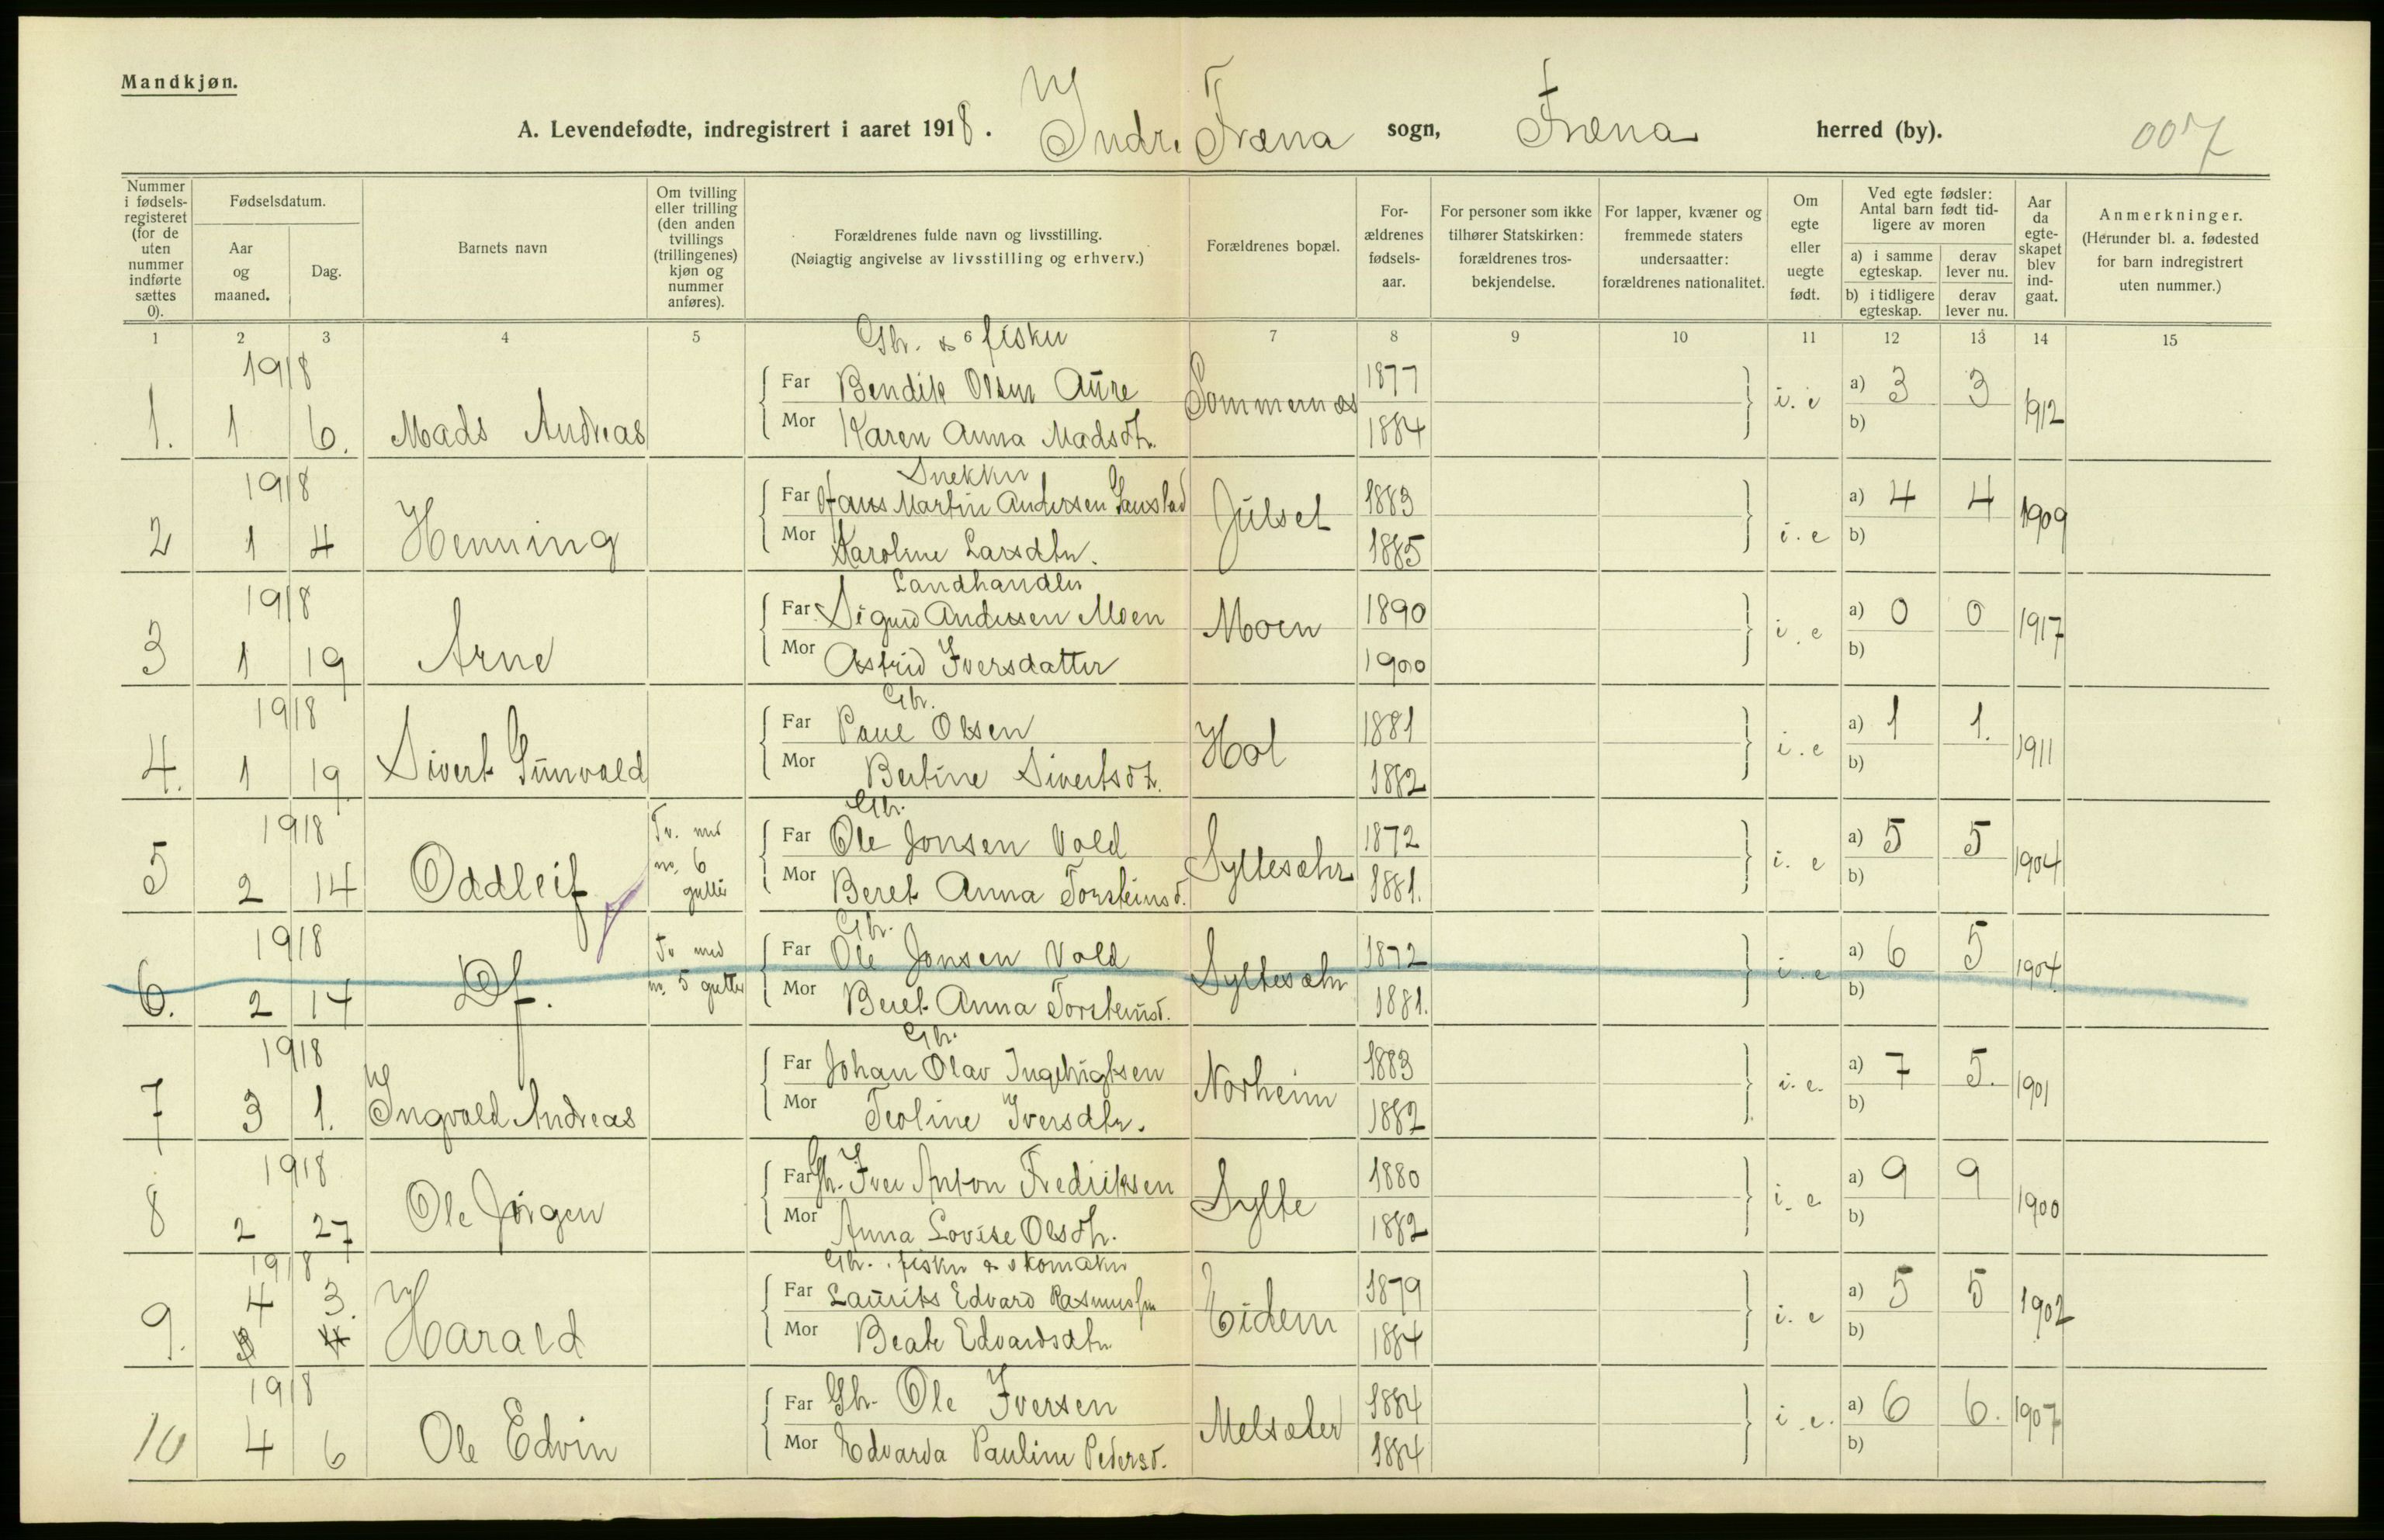 Mandkjøn.
A. Levendefødte, indregistrert i aaret 1918. Indre Fræna sogn, Fræna herred (by). 007
Nummer i fødselsregisteret (for de uten nummer indførte sættes 0).
Fødselsdatum.
Aar og maaned.
Dag.
Barnets navn
Om tvilling eller trilling (den anden tvillings (trillingenes) kjøn og nummer anføres).
Forældrenes fulde navn og livsstilling.
(Nøiagtig angivelse av livsstilling og erhverv.)
Forældrenes bopæl.
Forældrenes fødselsaar.
For personer som ikke tilhører Statskirken: forældrenes trosbekjendelse.
For lapper, kvæner og fremmede staters undersaatter: forældrenes nationalitet.
Om egte eller uegte født.
Ved egte fødsler: Antal barn født tidligere av moren
a) i samme egteskap.
derav lever nu.
b) i tidligere egteskap.
derav lever nu.
Aar da egteskapet blev indgaat.
Anmerkninger.
(Herunder bl. a. fødested for barn indregistrert uten nummer.)
1 2 3 4 5 6 7 8 9 10 11 12 13 14 15
1918 Gbr. & fisker
1. 1 6. Mads Andreas Far Bendik Olsen Aure Sommernes 1877 i. e a) 3 3 1912
Mor Karen Anna Madsdtr. 1884 b)
1918 Snekker
2 1 4 Henning Far Hans Martin Andersen Julset 1883 i. e a) 4 4 1909
Mor Karoline Larsdtr. 1885 b)
1918 Landhandler
3 1 19 Arne Far Sigurd Andersen Moen Moen 1890 i. e a) 0 0 1917
Mor Astrid Iversdatter 1900 b)
1918 Gbr.
4. 1 19 Sivert Gunvald Far Paul Olsen Hol 1881 i. e a) 1 1. 1911
Mor Bertine Sivertsdtr. 1882 b)
1918 Gbr.
5 2 14 Oddleif Tv. med no. 6 gutter Far Ole Jonsen Vold Syltesætr 1872 i. e a) 5 5 1904
Mor Beret Anna Torsteinsd. 1881. b)
1918 Gbr.
6. 2 14 Df. Tv med no. 5 gutter Far Ole Jonsen Vold Syltesætr 1872 i. e a) 6 5 1904
Mor Beret Anna Torsteinsd. 1881. b)
1918 Gbr.
7 3 1. Ingvald Andreas Far Johan Olav Ingebrigtsen Norheim 1883 i. e. a) 7 5. 1901
Mor Teoline Iversdtr. 1882 b)
1918
8 2 27 Ole Jørgen Far Gbr. Iver Anton Fredriksen Sylte 1880 i. e a) 9 9 1900
Mor Anna Lovise Olsdtr. 1882 b)
1918 Gbr. fisker & skomaker
9. 4 3. Harald Far Laurits Edvard Rasmussen Eidem 1879 i. e a) 5 5 1902
Mor Beate Edvardsdtr 1884 b)
1918
10 4 6 Ole Edvin Far Gbr. Ole Iversen Melsæter 1884 i. e. a) 6 6. 1907
Mor Edvarda Pauline Pedersd. 1884 b)